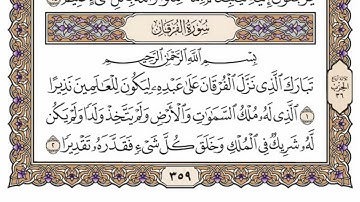 سُورَةُ الفُرْقَانِ
بِسْمِ اللَّهِ الرَّحْمَٰنِ الرَّحِيمِ
تَبَارَكَ الَّذِي نَزَّلَ الْفُرْقَانَ عَلَىٰ عَبْدِهِ لِيَكُونَ لِلْعَالَمِينَ نَذِيرًا
١ الَّذِي لَهُ مُلْكُ السَّمَاوَاتِ وَالْأَرْضِ وَلَمْ يَتَّخِذْ وَلَدًا وَلَمْ يَكُن
لَّهُ شَرِيكٌ فِي الْمُلْكِ وَخَلَقَ كُلَّ شَيْءٍ فَقَدَّرَهُ تَقْدِيرًا ٢
الحزب
٣٦
٣٥٩